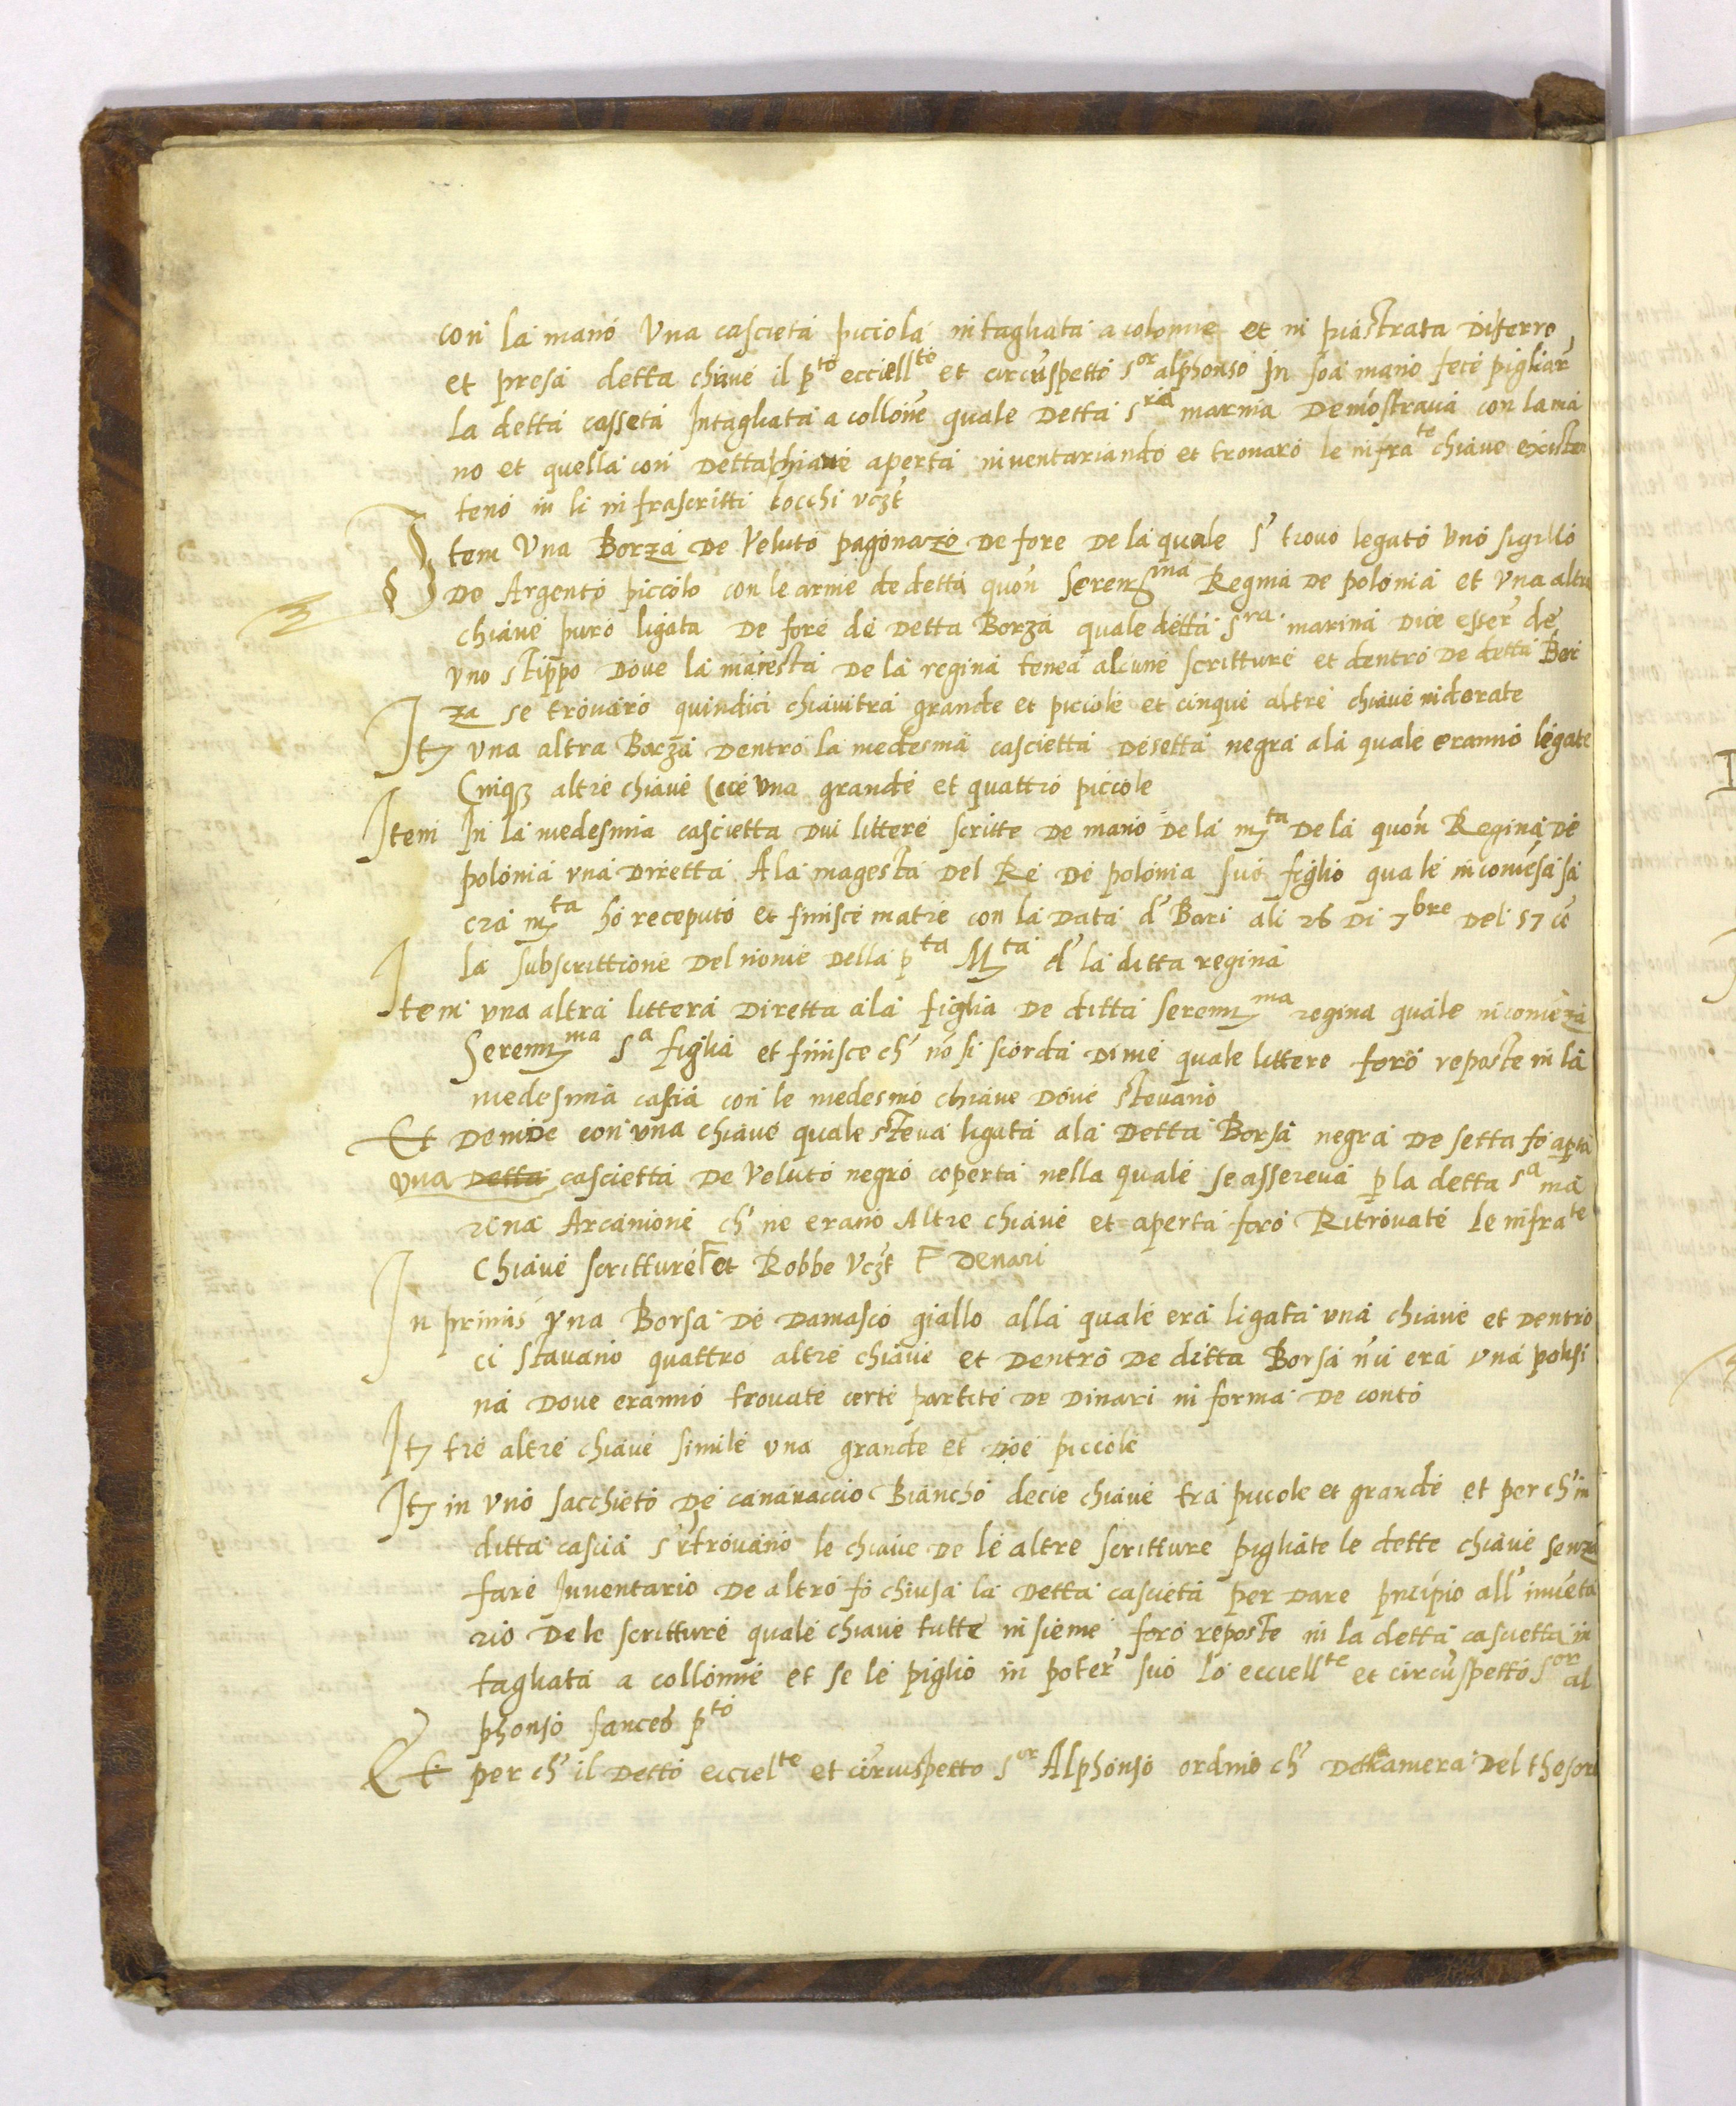 con la mano una cascieta piciola intagliata a colonne et in piastrata di ferro
et presa detta chiave il p.to ecciell.to et circũspetto s.or alphonso in soa mano fece pigliar
la detta casseta Intagliata a collõne quale detta s.ra marina demostrava con la ma
no et quella con detta chiave aperta inventariando et trovaro le infra.te chiave existen
teno in li infrascritti locchi vczt
Item Una Borza de Veluto pagonazo de fore de la quale s' trovò legato uno sigillo
de Argento piccolo con le arme de detta quoñ Sereniss.ma Regina de polonia et una altra
chiave puro ligata de fore de detta Borza quale detta s.ra marina dice esser de
uno stippo dove la maiesta de la regina tenea alcune scritture et dentro de detta Bor
za se trovaro quindici chiavi tra grande et piciole et cinque altre chiave indorate
It una altra Borza dentro la medesma cascietta de setta negra ala quale eranno legate
Cinq3 altre chiave cce una grande et quattro piccole
Item In la medesma cascietta dui littere scritte de mano de la m.ta de la quoñ Regina de
polonia una diretta Ala magesta del Re de polonia suo figlio quale incomēsa sa
cra m.ta ho receputo et finisce matre con la data d' Bari ali 26 di 7bre del 57 cō
la subscrittione del nome della p.ta M.ta d' la ditta regina
Item una altra littera diretta ala figlia de ditta Sereniss.ma regina quale incomēza
Sereniss.ma s.a figlia et finisce ch' nõ si scorda di me quale littere foro reposte in la
medesma cascia con le medesmo chiave dove stevano
Et demde con una chiave quale steva ligata ala detta Borsa negra de setta fo apta
una detta cascietta de Veluto negro coperta nella quale se assereva p la detta s.a ma
rina Arcamone ch' ne erano Altre chiave et aperta foro Ritrovate le infra.te
chiave scritture F et Robbe vczt F denari
In primis una Borsa de damasco giallo alla quale era ligata una chiave et dentro
ci stavano quattro altre chiave et dentro de ditta Borsa n'ci era una polisi
na dove eranno trovate certe partite de dinari in forma de conto
It tre altre chiave simile una grande et doe piccole
It in uno sacchieto de canavaccio Biancho decie chiave tra piccole et grande et per ch' in
ditta cascia s' ritrovano le chiave de le altre scritture pigliate le dette chiave senza
fare Inventario de altro fo chiusa la detta cascieta per dare pncipio all' invēta
rio dele scritture quale chiave tutte insieme foro reposte in la detta cascietta in
tagliata a collonne et se le piglio in poter suo lo eccell.te et circũspetto s.or al
phonso sances p.to
Et per ch' il detto eccell.te et circuspetto s.or Alphonso ordinò ch' detta camera del thesoro